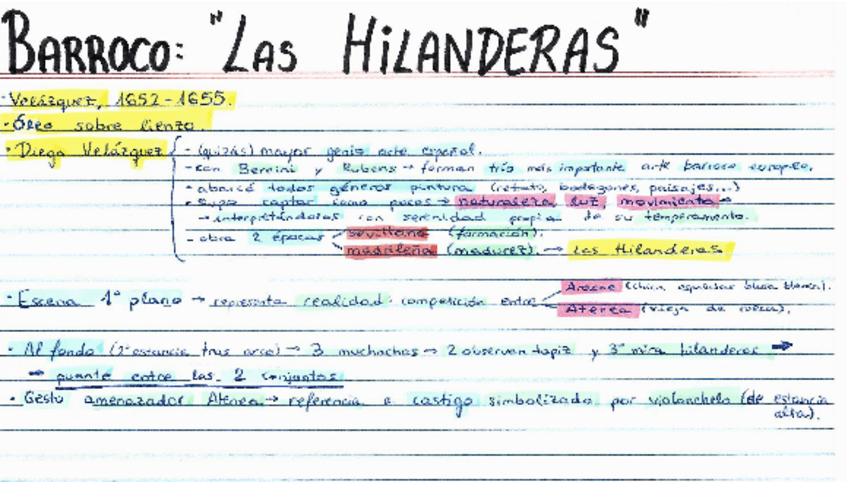 BARROCO: "LAS HILANDERAS"
· Velázquez, 1652-1655.
· Óleo sobre lienzo.
· Diego Velázquez { - (quizás) mayor genio arte español.
- con Bernini y Rubens → forman trío más importante arte barroco europeo.
- abarcó todos géneros pintura (retrato, bodegones, paisajes...)
- supo captar como pocos → naturaleza, luz, movimiento →
→ interpretándolas con serenidad propia de su temperamento.
- obra 2 épocas sevillana (formación).
madrileña (madurez). → Las Hilanderas
· Escena 1º plano → representa realidad: competición entre Aracne (chica espaldas blusa blanca).
Atenea (vieja de rueca).
· Al fondo (2ª estancia tras arco) → 3 muchachas → 2 observan tapiz y 3ª mira hilanderas →
→ puente entre las 2 conjuntos
· Gesto amenazador Atenea → referencia a castigo simbolizado por violonchelo (de estancia
alta).